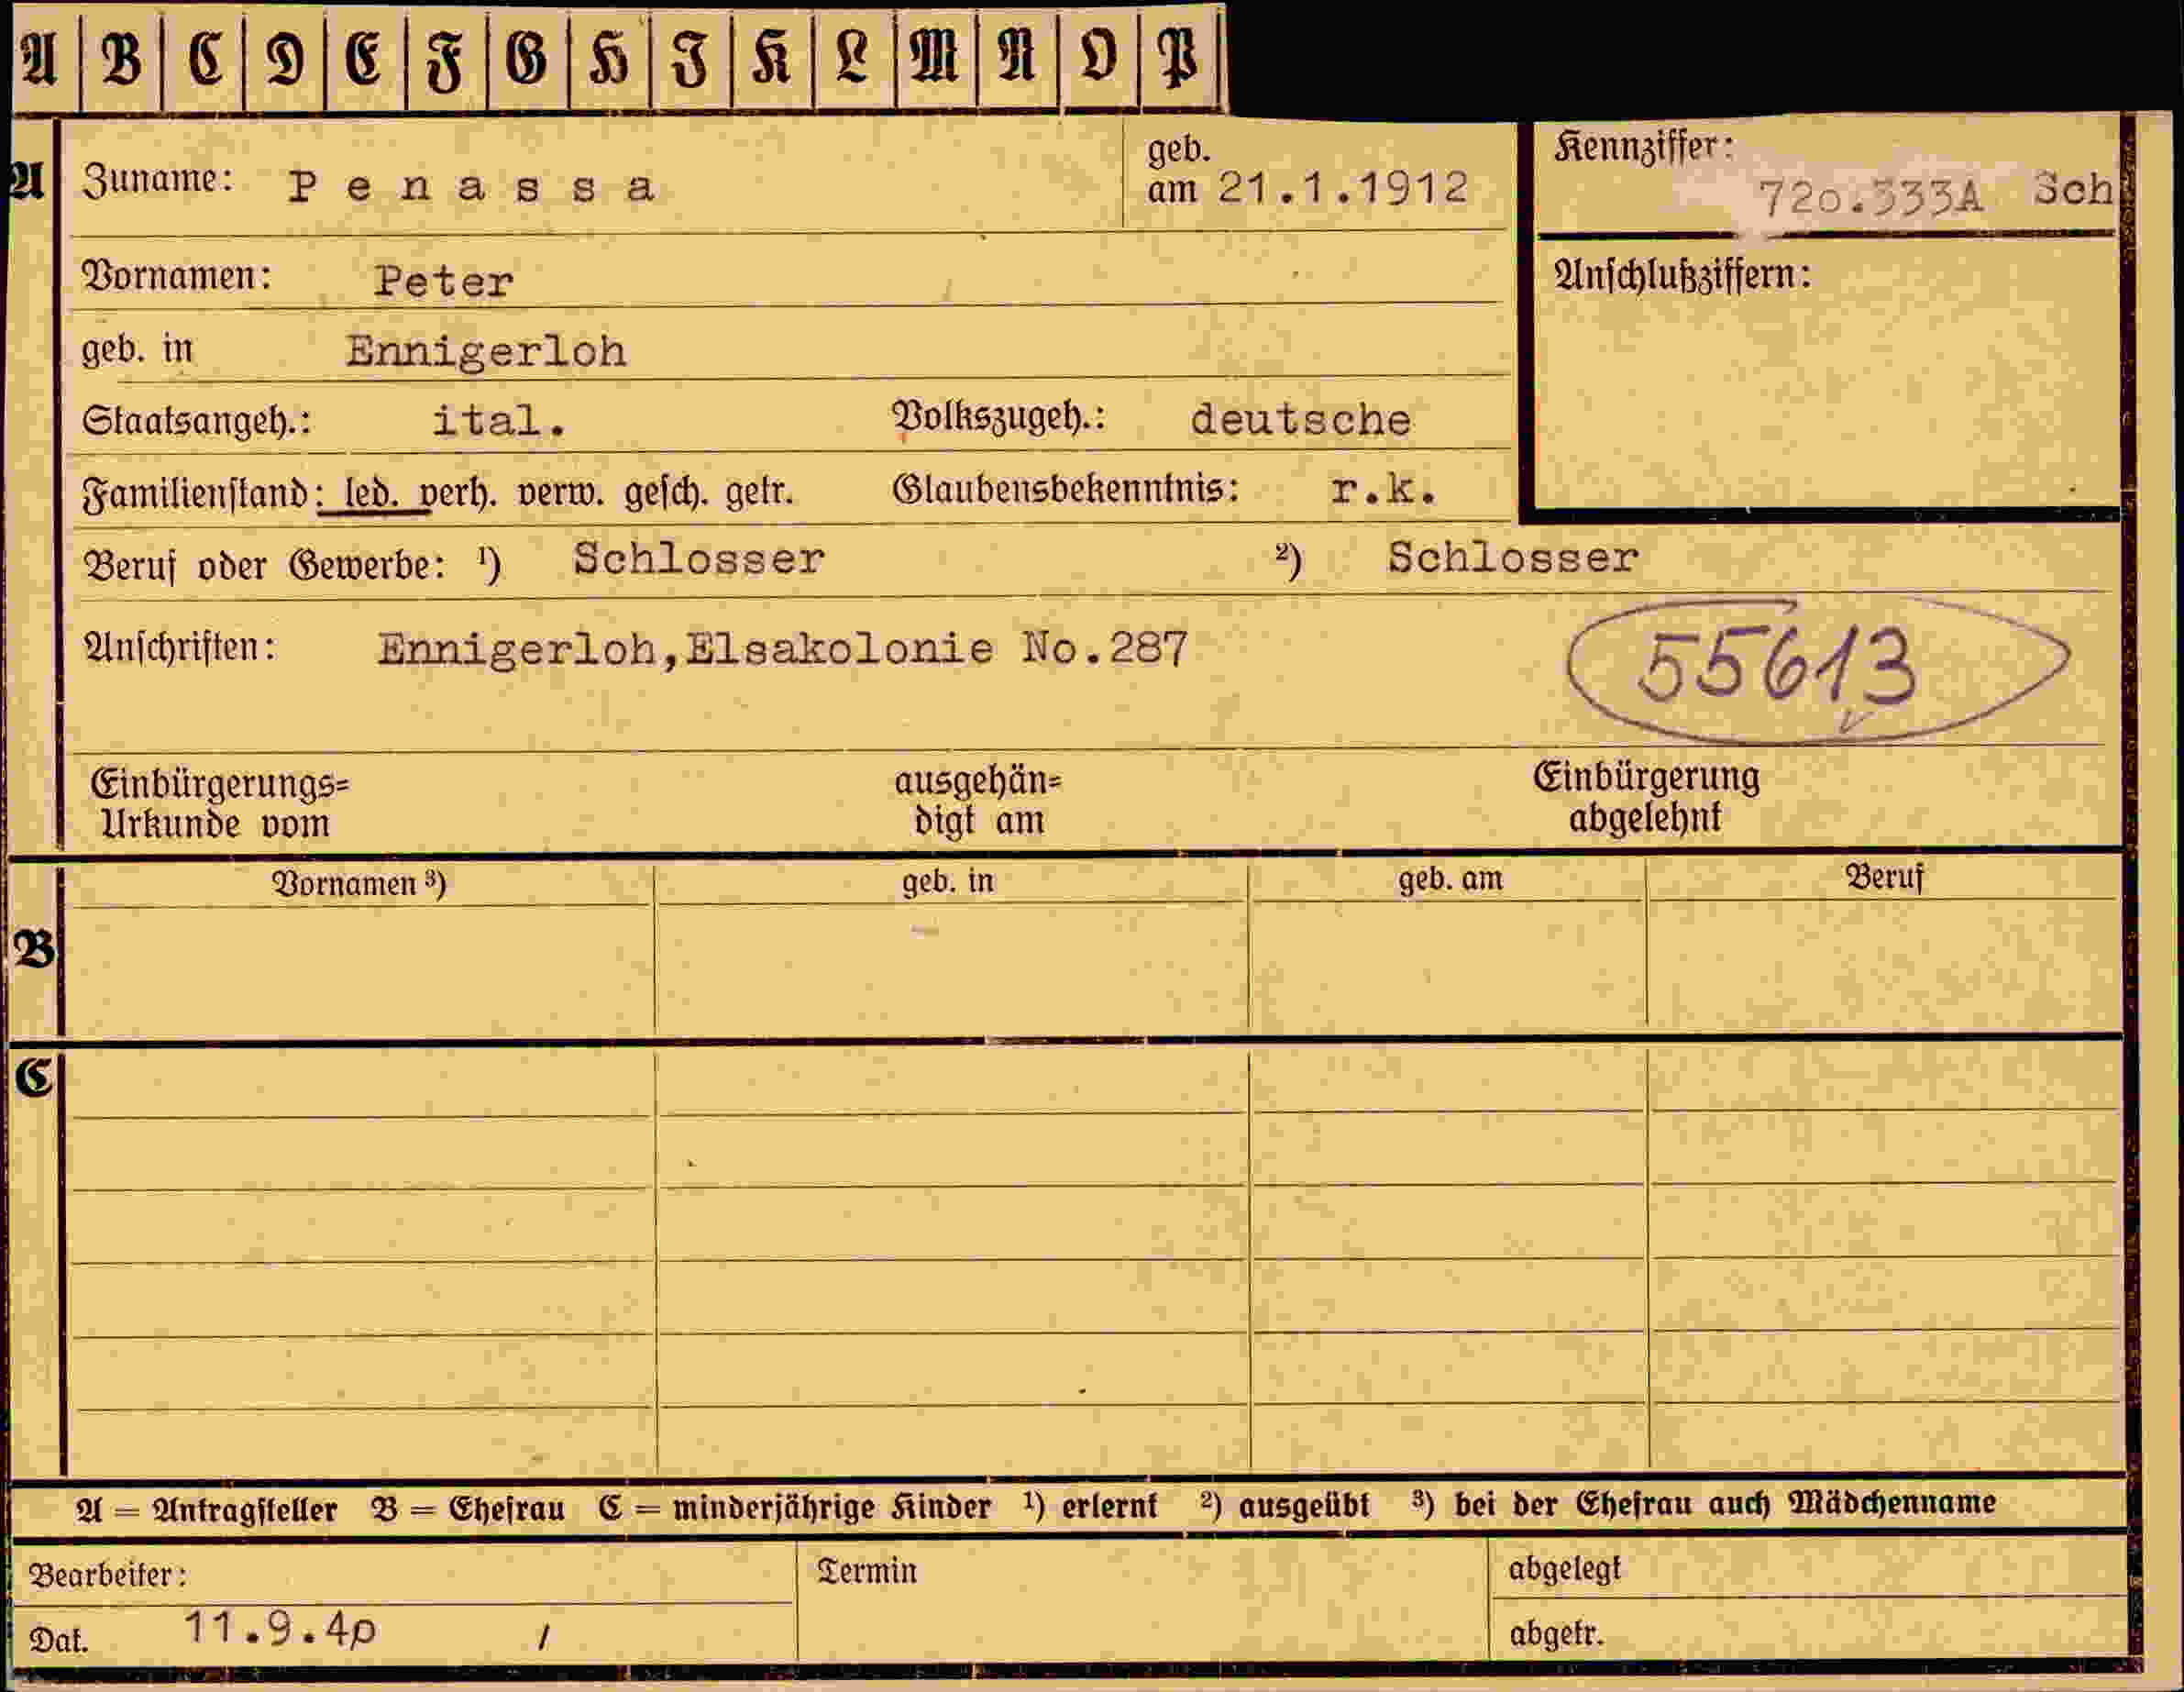 A B C D E F G H I K L M N O P
A Zuname: Penassa geb. am 21.1.1912
Kennziffer: 720.333A Sch
Vornamen: Peter
Anschlußziffern:
geb. in Ennigerloh
Staatsangeh.: ital. Volkszugeh.: deutsche
Familienstand: led. verh. verw. gesch. getr. Glaubensbekenntnis: r.k.
Beruf oder Gewerbe: ¹) Schlosser ²) Schlosser
Anschriften: Ennigerloh,Elsakolonie No.287
55613
Einbürgerungs=
Urkunde vom
ausgehän=
digt am
Einbürgerung
abgelehnt
Vornamen ³) geb. in geb. am Beruf
B
C
A = Antragsteller B = Ehefrau C = minderjährige Kinder ¹) erlernt ²) ausgeübt ³) bei der Ehefrau auch Mädchenname
Bearbeiter: Termin abgelegt
Dat. 11.9.40 / abgetr.